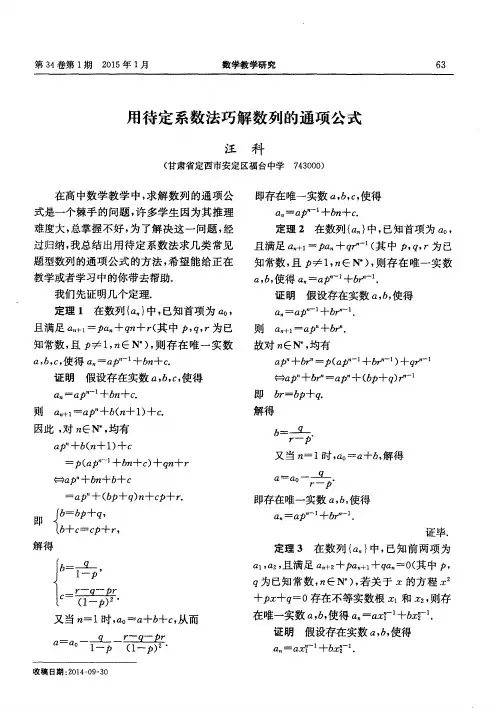 第34卷第1期 2015年1月 数学教学研究 63
用待定系数法巧解数列的通项公式
汪 科
(甘肃省定西市安定区福台中学 743000)
在高中数学教学中,求解数列的通项公
式是一个棘手的问题,许多学生因为其推理
难度大,总掌握不好,为了解决这一问题,经
过归纳,我总结出用待定系数法求几类常见
题型数列的通项公式的方法,希望能给正在
教学或者学习中的你带去帮助.
我们先证明几个定理.
定理1 在数列{aₙ}中,已知首项为a₀,
且满足aₙ₊₁=paₙ+qn+r(其中p,q,r为已
知常数,且p≠1,n∈N*),则存在唯一实数
a,b,c,使得aₙ=apⁿ⁻¹+bn+c.
证明 假设存在实数a,b,c,使得
aₙ=apⁿ⁻¹+bn+c.
则 aₙ₊₁=apⁿ+b(n+1)+c.
因此,对n∈N*,均有
apⁿ+b(n+1)+c
=p(apⁿ⁻¹+bn+c)+qn+r
⇔apⁿ+bn+b+c
=apⁿ+(bp+q)n+cp+r.
即 {b=bp+q,
b+c=cp+r,
解得
{b=q/(1-p),
c=(r-q-pr)/(1-p)².
又当n=1时,a₀=a+b+c,从而
a=a₀-q/(1-p)-(r-q-pr)/(1-p)².
收稿日期:2014-09-30
即存在唯一实数a,b,c,使得
aₙ=apⁿ⁻¹+bn+c.
定理2 在数列{aₙ}中,已知首项为a₀,
且满足aₙ₊₁=paₙ+qrⁿ⁻¹(其中p,q,r为已
知常数,且p≠1,n∈N*),则存在唯一实数
a,b,使得aₙ=apⁿ⁻¹+brⁿ⁻¹.
证明 假设存在实数a,b,使得
aₙ=apⁿ⁻¹+brⁿ⁻¹.
则 aₙ₊₁=apⁿ+brⁿ.
故对n∈N*,均有
apⁿ+brⁿ=p(apⁿ⁻¹+brⁿ⁻¹)+qrⁿ⁻¹
⇔apⁿ+brⁿ=apⁿ+(bp+q)rⁿ⁻¹
即 br=bp+q.
解得
b=q/(r-p).
又当n=1时,a₀=a+b,解得
a=a₀-q/(r-p).
即存在唯一实数a,b,使得
aₙ=apⁿ⁻¹+brⁿ⁻¹.
证毕.
定理3 在数列{aₙ}中,已知前两项为
a₁,a₂,且满足aₙ₊₂+paₙ₊₁+qaₙ=0(其中p,
q为已知常数,n∈N*),若关于x的方程x²
+px+q=0存在不等实数根x₁和x₂,则存
在唯一实数a,b,使得aₙ=ax₁ⁿ⁻¹+bx₂ⁿ⁻¹.
证明 假设存在实数a,b,使得
aₙ=ax₁ⁿ⁻¹+bx₂ⁿ⁻¹.